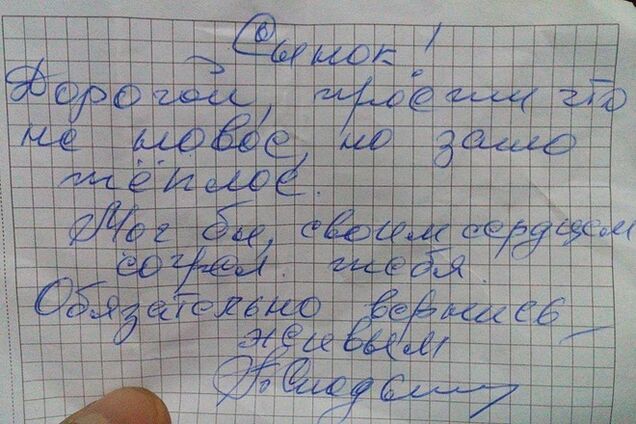 Сынок!
Дорогой, прости что
не новое, но зато
тёплое.
Мог бы, своим сердцем
согрел. тебя.
Обязательно вернись
живым